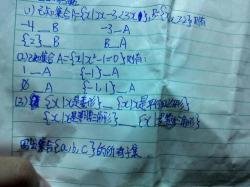 (1)已知集合A={x|x-3<3x},B={x|x≥2}则有
-4__B -3__A
{2}__B B__A
(2)已知集合A={x|x²-1=0}则有:
1__A {-1}__A
∅__A {-1,1}__A
(3) {x|x是菱形}__{x|x是平行四边形}
{x|x是等腰三角形}__{x|x是等边三角形}
写出集合{a,b,c}的所有子集